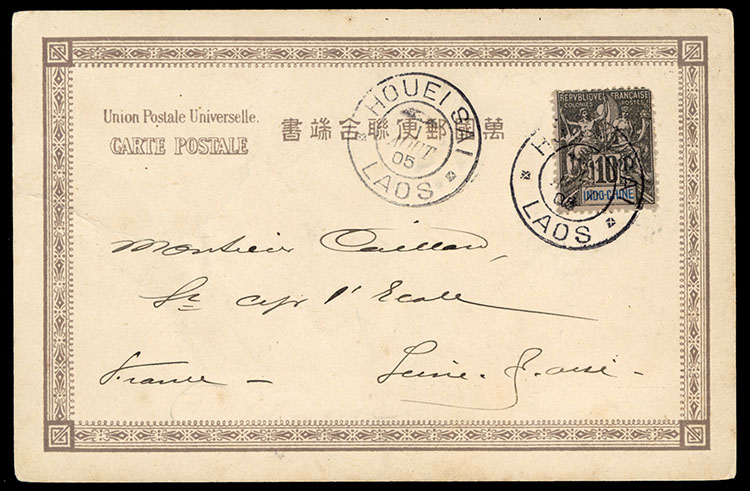 Union Postale Universelle.
CARTE POSTALE
書端合聯便郵國萬
HOUEI SAI
AOUT
05
LAOS
REPUBLIQUE FRANCAISE
COLONIES POSTES
10
INDO-CHINE
H SAI
05
LAOS
Monsieur
St Cyr l'Ecole
France – Seine-&-Oise –